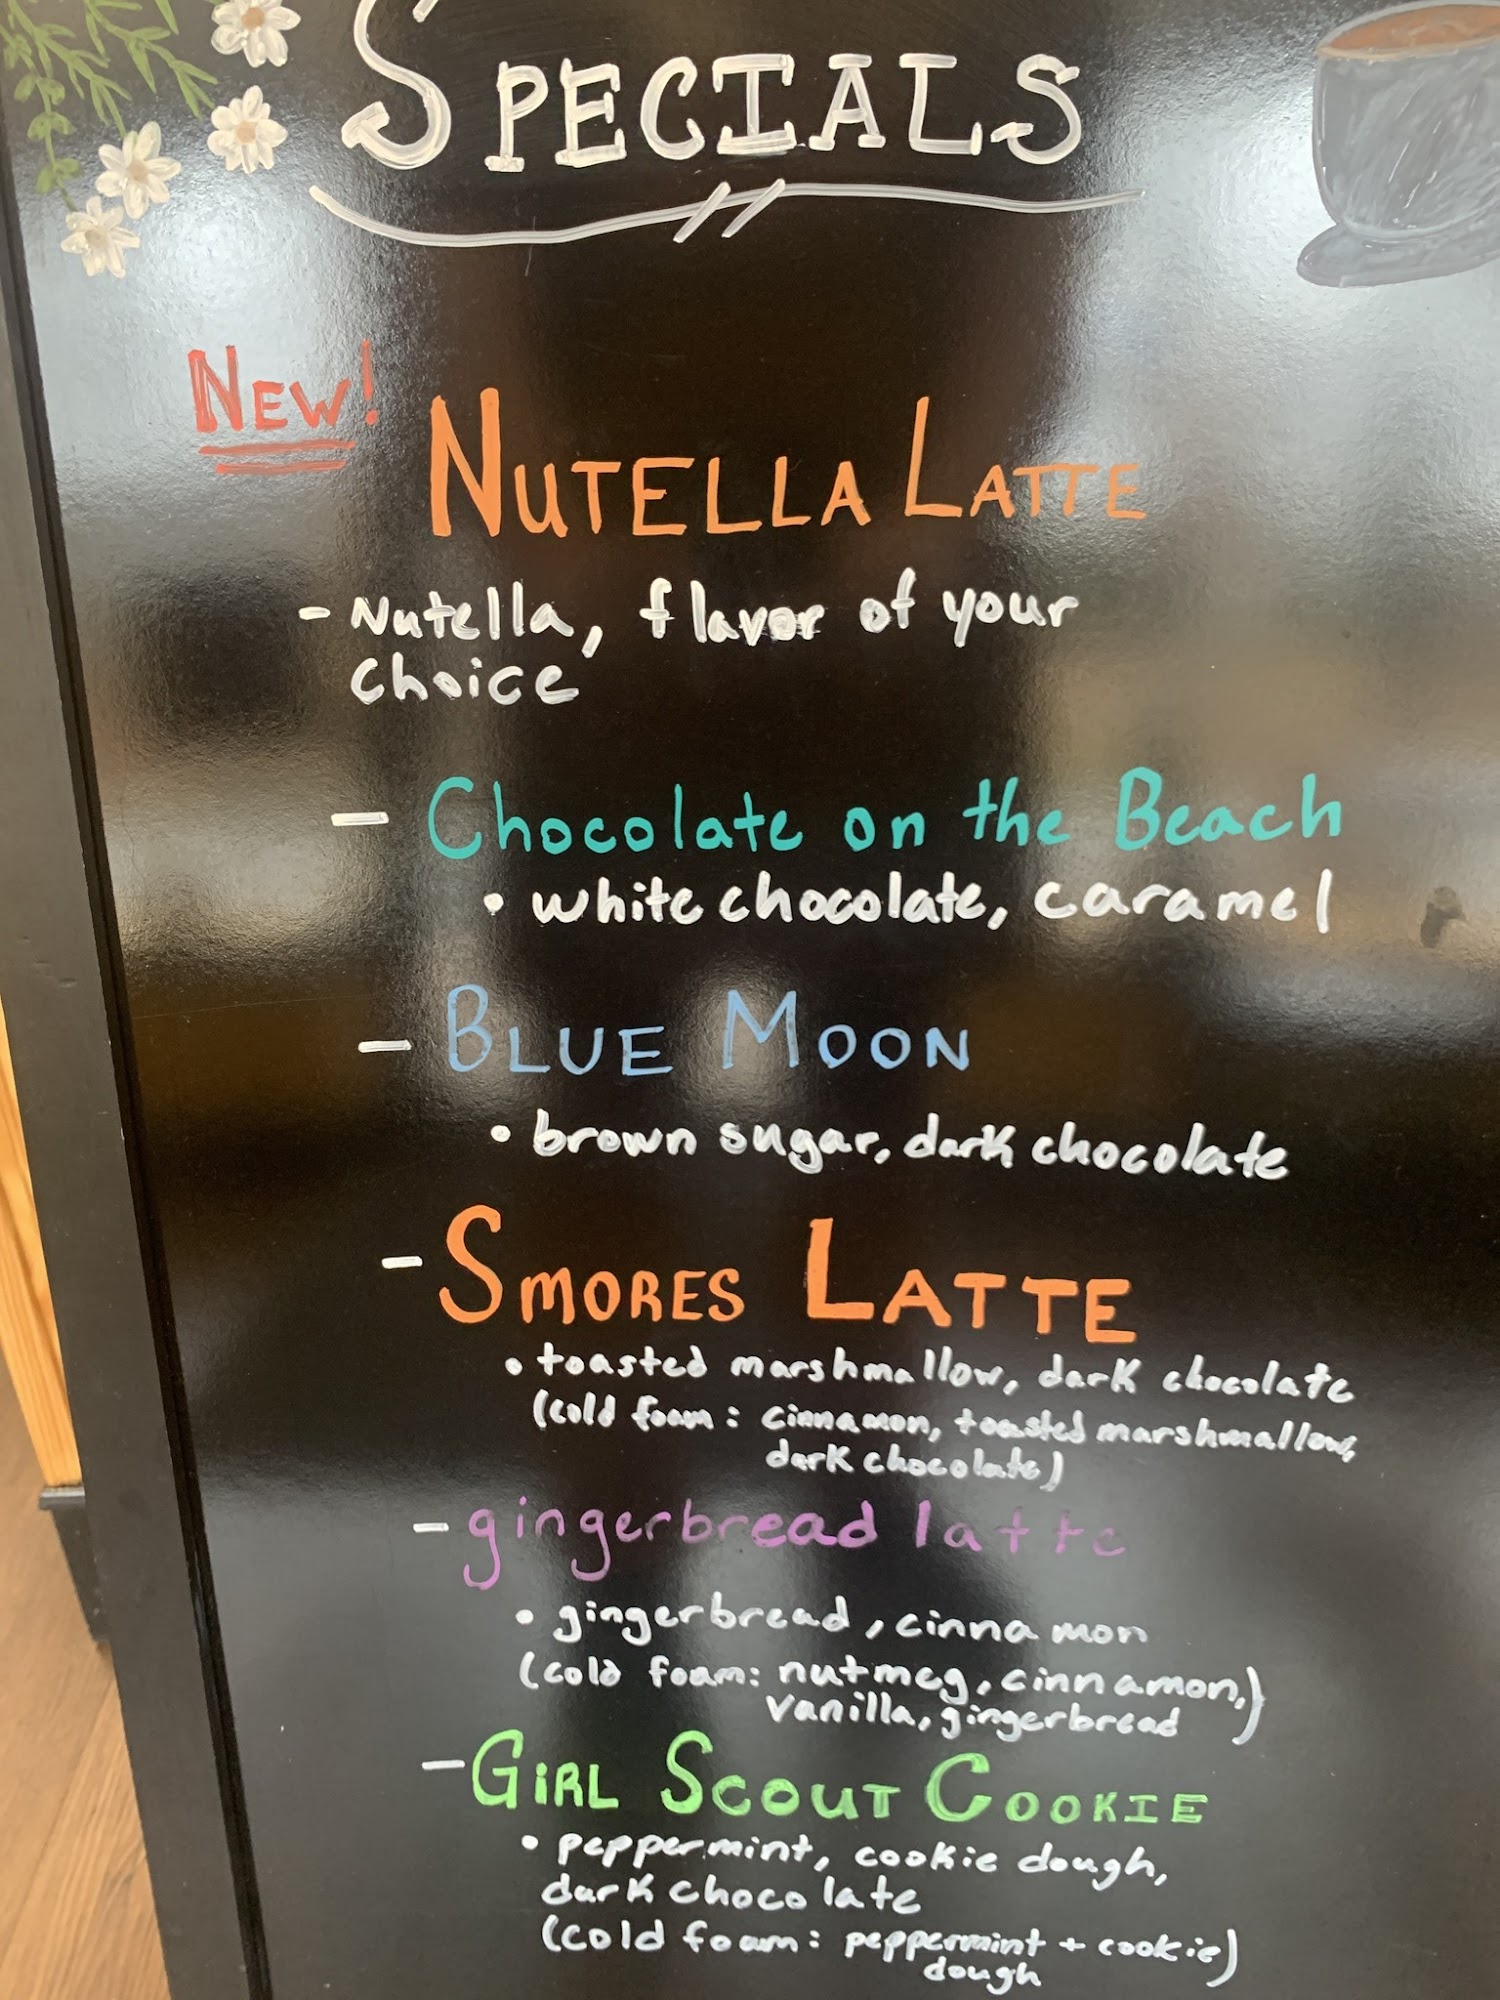 SPECIALS
NEW!
NUTELLA LATTE
- Nutella, flavor of your
choice
- Chocolate on the Beach
• white chocolate, caramel
- BLUE MOON
• brown sugar, dark chocolate
- SMORES LATTE
• toasted marshmallow, dark chocolate
(cold foam: cinnamon, toasted marshmallow,
dark chocolate)
- gingerbread latte
• gingerbread, cinnamon
(cold foam: nutmeg, cinnamon,)
vanilla, gingerbread
- GIRL SCOUT COOKIE
• peppermint, cookie dough,
dark chocolate
(cold foam: peppermint + cookie)
dough